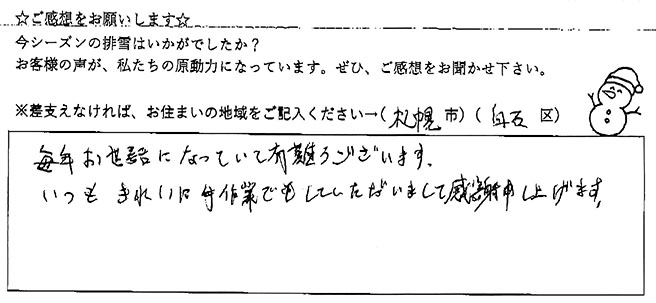 ☆ご感想をお願いします☆
今シーズンの排雪はいかがでしたか？
お客様の声が、私たちの原動力になっています。ぜひ、ご感想をお聞かせ下さい。
※差支えなければ、お住まいの地域をご記入ください→（札幌市）（白石区）
毎年お世話になっていて有難うございます。
いつもきれいに手作業でもしていただいまして感謝申し上げます。